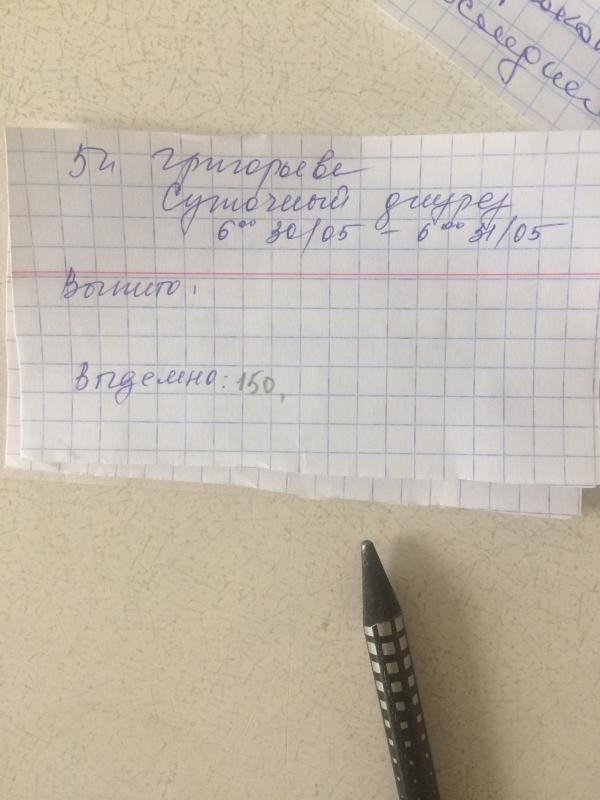 окон
последнем
5п Григорьева
Суточный диурез
6⁰⁰ 30/05 – 6⁰⁰ 31/05
Выпито:
Выделено: 150,